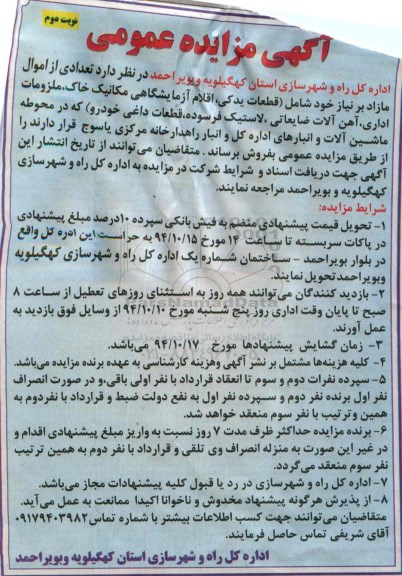 نوبت دوم
آگهی مزایده عمومی
اداره کل راه و شهرسازی استان کهگیلویه و بویراحمد در نظر دارد تعدادی از اموال
مازاد بر نیاز خود شامل (قطعات یدکی، اقلام آزمایشگاهی مکانیک خاک، ملزومات
اداری، آهن آلات ضایعاتی ،لاستیک فرسوده،قطعات داغی خودرو) که در محوطه
ماشین آلات و انبارهای اداره کل و انبار راهدارخانه مرکزی یاسوج قرار دارند را
از طریق مزایده عمومی بفروش برساند . متقاضیان می‌توانند از تاریخ انتشار این
آگهی جهت دریافت اسناد و شرایط شرکت در مزایده به اداره کل راه و شهرسازی
کهگیلویه و بویراحمد مراجعه نمایند.
شرایط مزایده:
۱- تحویل قیمت پیشنهادی منضم به فیش بانکی سپرده ۱۰درصد مبلغ پیشنهادی
در پاکات سربسته تا ساعت ۱۴ مورخ ۹۴/۱۰/۱۵ به حراست این اداره کل واقع
در بلوار بویراحمد - ساختمان شماره یک اداره کل راه و شهرسازی کهگیلویه
وبویراحمدتحویل نمایند.
۲- بازدید کنندگان می‌توانند همه روز به استثنای روزهای تعطیل از ساعت ۸
صبح تا پایان وقت اداری روز پنج شنبه مورخ ۹۴/۱۰/۱۰ از وسایل فوق بازدید به
عمل آورند.
۳- زمان گشایش پیشنهادها مورخ ۹۴/۱۰/۱۷ می‌باشد.
۴- کلیه هزینه‌ها مشتمل بر نشر آگهی وهزینه کارشناسی به عهده برنده مزایده می‌باشد.
۵- سپرده نفرات دوم و سوم تا انعقاد قرارداد با نفر اولی باقی،و در صورت انصراف
نفر اول برنده نفر دوم و سپرده نفر اول به نفع دولت ضبط و قرارداد با نفردوم به
همین وترتیب با نفر سوم منعقد خواهد شد.
۶- برنده مزایده حداکثر ظرف مدت ۷ روز نسبت به واریز مبلغ پیشنهادی اقدام و
در غیر این صورت به منزله انصراف وی تلقی و قرارداد با نفر دوم به همین ترتیب
نفر سوم منعقد می‌گردد.
۷- اداره کل راه و شهرسازی در رد یا قبول کلیه پیشنهادات مجاز می‌باشد.
۸- از پذیرش هرگونه پیشنهاد مخدوش و ناخوانا اکیدا ممانعت به عمل می‌آید.
متقاضیان می‌توانند جهت کسب اطلاعات بیشتر با شماره تماس ۰۹۱۷۹۴۰۳۹۸۲
آقای شریفی تماس حاصل فرمایند.
اداره کل راه و شهرسازی استان کهگیلویه وبویراحمد